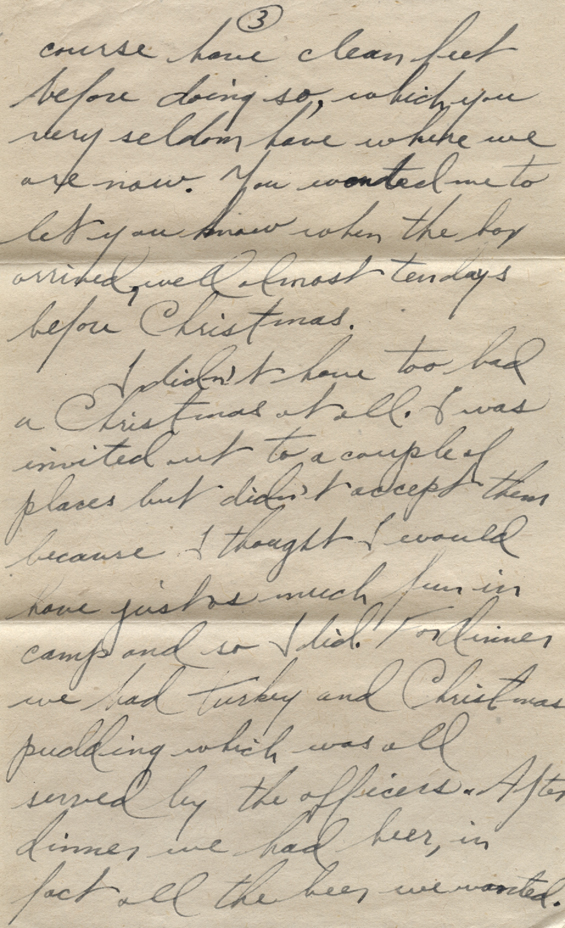 3
course have clean feet
before doing so, which you
very seldom have where we
are now. You wanted me to
let you know when the box
arrived, well almost ten days
before Christmas.
I didn't have too bad
a Christmas at all. I was
invited out to a couple of
places but didn't accept them
because I thought I would
have just as much fun in
camp and so I did. For dinner
we had turkey and Christmas
pudding which was all
served by the officers. After
dinner we had beer, in
fact all the beer we wanted.